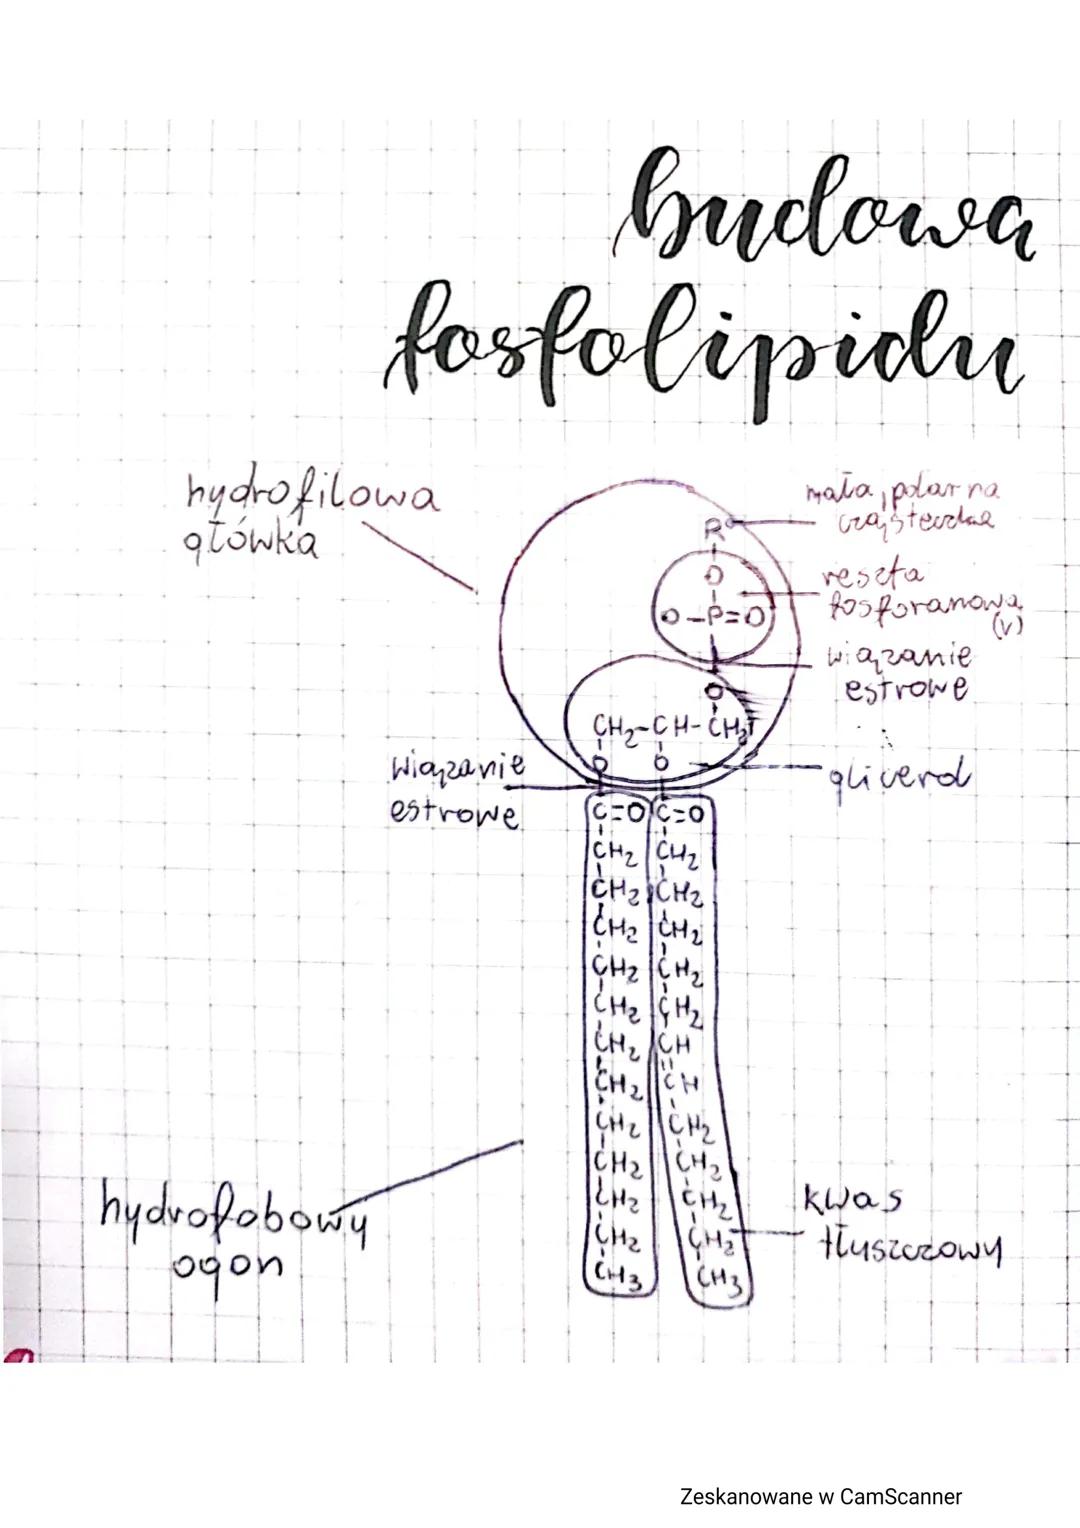 budowa
fosfolipidu
hydrofilowa
główka
mała, polarna
cząsteczka
R
reszta
fosforanowa
(V)
O
O-P=O
wiązanie
estrowe
O
CH2-CH-CH2
O O
glicerol
wiązanie
estrowe
C=O C=O
CH2 CH2
CH2 CH2
CH2 CH2
CH2 CH2
CH2 CH2
CH2 CH
CH2 CH
CH2 CH2
CH2 CH2
CH2 CH2
CH2 CH2
CH3 CH3
hydrofobowy
ogon
kwas
tłuszczowy
Zeskanowane w CamScanner